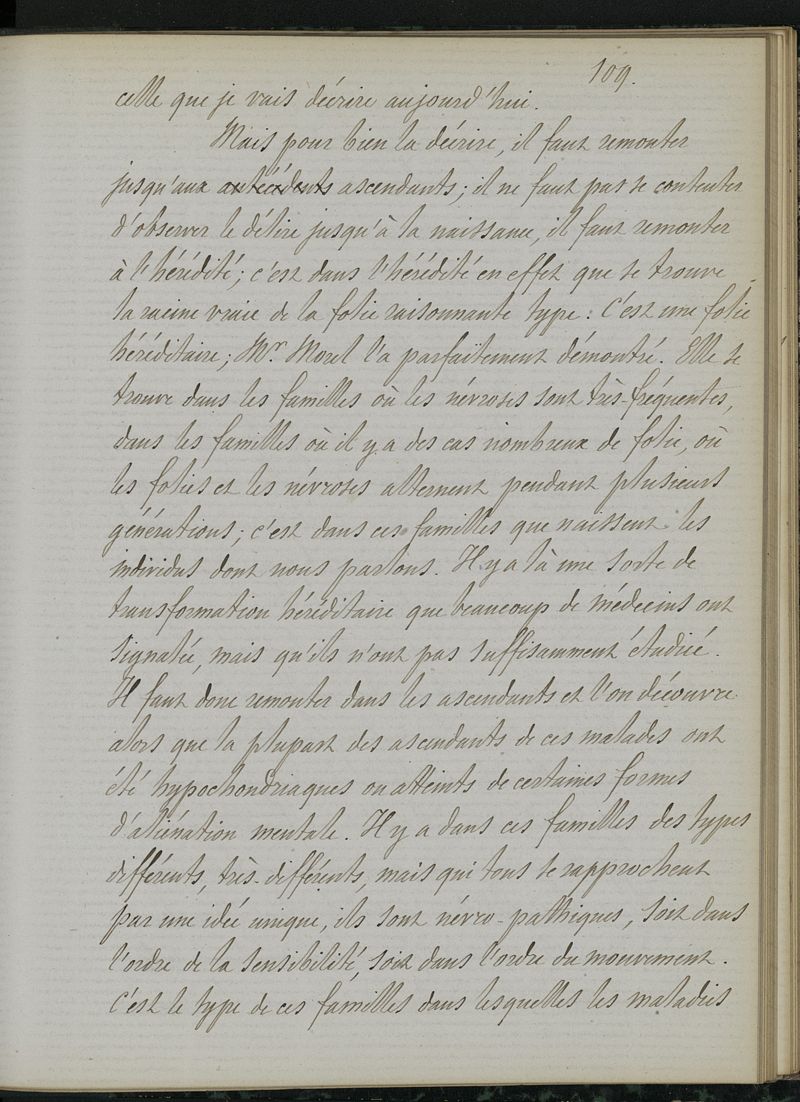 109.
celle que je vais décrire aujourd'hui.
Mais pour bien la décrire, il faut remonter
jusqu'aux antécédents ascendants; il ne faut pas se contenter
d'observer le délire jusqu'à la naissance, il faut remonter
à l'hérédité; c'est dans l'hérédité en effet que se trouve
la racine vraie de la folie raisonnante type: C'est une folie
héréditaire; Mr. Morel l'a parfaitement démontré. Elle se
trouve dans les familles où les névroses sont très-fréquentes,
dans les familles où il y a des cas nombreux de folie, où
les folies et les névroses alternent pendant plusieurs
générations; c'est dans ces familles que naissent les
individus dont nous parlons. Il y a là une sorte de
transformation héréditaire que beaucoup de médecins ont
signalée, mais qu'ils n'ont pas suffisamment étudiée.
Il faut donc remonter dans les ascendants et l'on découvre
alors que la plupart des ascendants de ces malades ont
été hypochondriaques ou atteints de certaines formes
d'aliénation mentale. Il y a dans ces familles des types
différents, très-différents, mais qui tous se rapprochent
par une idée unique, ils sont névro-pathiques, soit dans
l'ordre de la sensibilité, soit dans l'ordre du mouvement.
C'est le type de ces familles dans lesquelles les maladies